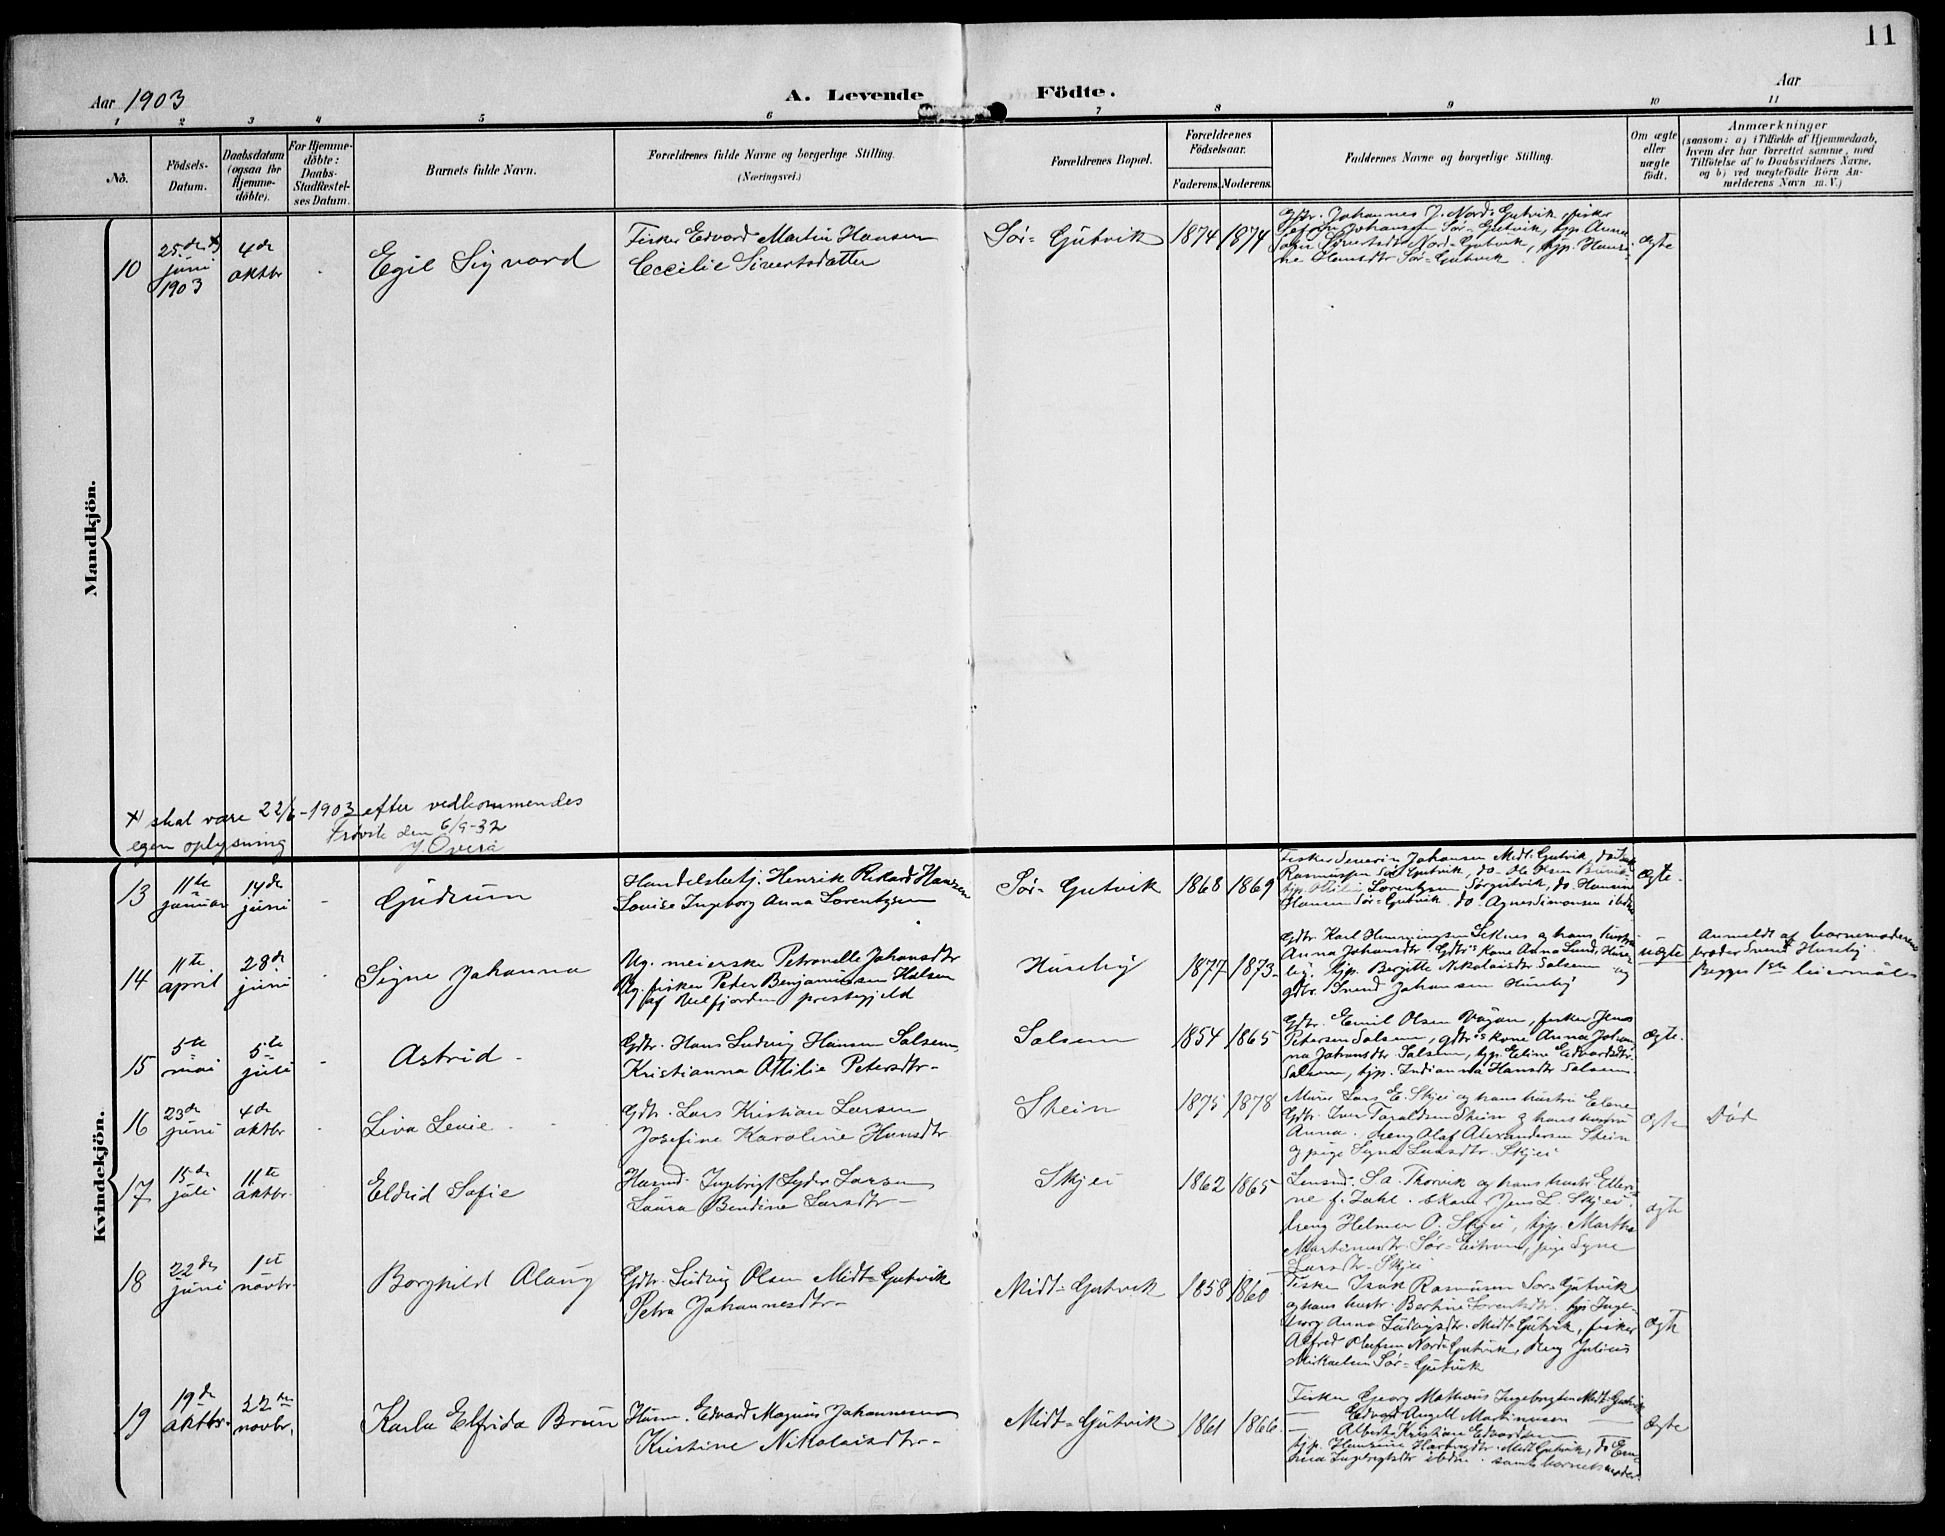 11
Aar 1903
A. Levende Födte.
Aar
1 2 3 4 5 6 7 8 9 10 11
No.
Födsels-
Datum.
Daabsdatum
(ogsaa for
Hjemme-
döbte).
For Hjemme-
döbte:
Daabs-
Stadfestel-
ses Datum.
Barnets fulde Navn.
Forældrenes fulde Navne og borgerlige Stilling.
(Næringsvei.)
Forældrenes Bopæl.
Forældrenes
Födselsaar.
Faderens. Moderens.
Faddernes Navne og borgerlige Stilling.
Om ægte
eller
uægte
födt.
Anmærkninger
(saasom: a) i Tilfælde af Hjemmedaab,
hvem der har forrettet samme, med
Tilföielse af to Daabsvidners Navne,
og b) ved uægtefödte Börn An-
melderens Navn m. V.)
Mandkjön.
10
25de x)
juni
1903
4de
oktbr
Egil Sigvard
Fisker Edvard Martin Hansen
Cecilie Sivertsdatter
Sör-Gutvik
1874 1874
Gdbr. Johannes J. Nord-Gutvik, fisker
Johansen Sör-Gutvik, kjp. Anna
Sivertsdtr Nord-Gutvik, kjp. Hansi-
ne Hansdtr Sör-Gutvik
ægte
x) skal være 22/6-1903 efter vedkommendes
egen oplysning
den 6/9-32
Kvindekjön.
13
11te
januar
14de
juni
Gudrum
Handelsbetj. Henrik Rikard Hansen
Lovise Ingeborg Anna Lorentzen
Sör-Gutvik
1868 1869
Fisker Severin Johansen Midt-Gutvik, do Isak
Rasmussen Sör Gutvik, do Ole Olsen
kjp. Lorentzen Sörgutvik, do Hansine
Hansen Sör-Gutvik do Agnes Simonsen ibdm
ægte
14
11te
april
28de
juni
Signe Johanna
Ug. meierske Petronelle Johansdtr
Ug. fisker Peder Benjaminsen
af Velfjorden prestegjeld
Huseby
1877 1873
Gdbr. Karl Henningsen Seknes og hans hustru
Anna Johansdtr Gdbr's kone Anna Lund, Huse-
by, kjp. Bergitte Nikolaisdtr Salsem og
gdbr. Svend Johansen Huseby
uægte
Anmeldt af barnemoderens
broder Svend Huseby.
Begges 1ste leiermaal
15
5te
mai
5te
juli
Astrid
Gdbr. Hans Ludvig Hansen Salsem,
Kristianna Otilie Petersdtr
Salsem
1854 1865
Gdbr. Emil Olsen Vågan, fisker Jens
Petersen Salsem, gdbr's kone Anna Johan-
na Johansdtr Salsem, kjp. Eline Edvardsdtr
Salsem, kjp. Indianna Hansdtr Salsem
ægte.
16
23de
juni
4de
oktbr
Liva Levie
Gdbr. Lars Kristian Larsen
Josefine Karoline Hansdtr
Skein
1875 1878
Murer Lars E. Skjei og hans hustru Elene
Gdbr. Iver Toraldsen Skein og hans hustru
Anna. dreng Olaf Alexandersen Skein
og pige Signe Larsdtr. Skjei
ægte
Död
17
15de
juli
11te
oktbr.
Eldrid Sofie
Husmd. Ingebrigt Larsen
Laura Bendine Larsdtr
Skjei
1862 1865
Lensmd. Sa. Thorvik og hans hustru Elleri-
ne f. Zahl. Skom. Jens L. Skjei
dreng Helmer O. Skjei, kjp. Martha
Martinusdtr. Sör-Leitrem, pige Signe
Larsdtr. Skjei
ægte
18
22de
juni
1ste
novbr.
Borghild Alaug
Gdbr. Ludvig Olsen Midt-Gutvik
Petra Johannesdtr
Midt-Gutvik
1858 1860
Fisker Isak Rasmusen Sör-Gutvik
og hans hustr. Bertine Lorentsdtr. kjp. Inge-
borg Anna Ludvigsdtr. Midt-Gutvik, fisker
Alfred Olufsen Nord-Gutvik, dreng Julius
Mikaelsen Sör-Gutvik
ægte
19
19de
oktbr.
22de
novbr.
Karla Elfrida Brun
Husm. Edvard Magnus Johannesen
Kristine Nikolaisdtr
Midt-Gutvik
1861 1866
Fisker Georg Mathæus Ingebrigtsen Midt-Gutvik
— Edvard Angell Martinusen —
— Albert Kristian Edvardsen —
kjp. Hansine Midt Gutvik, do
Ingebrigtsdtr ibdm. samt barnets moder.
ægte